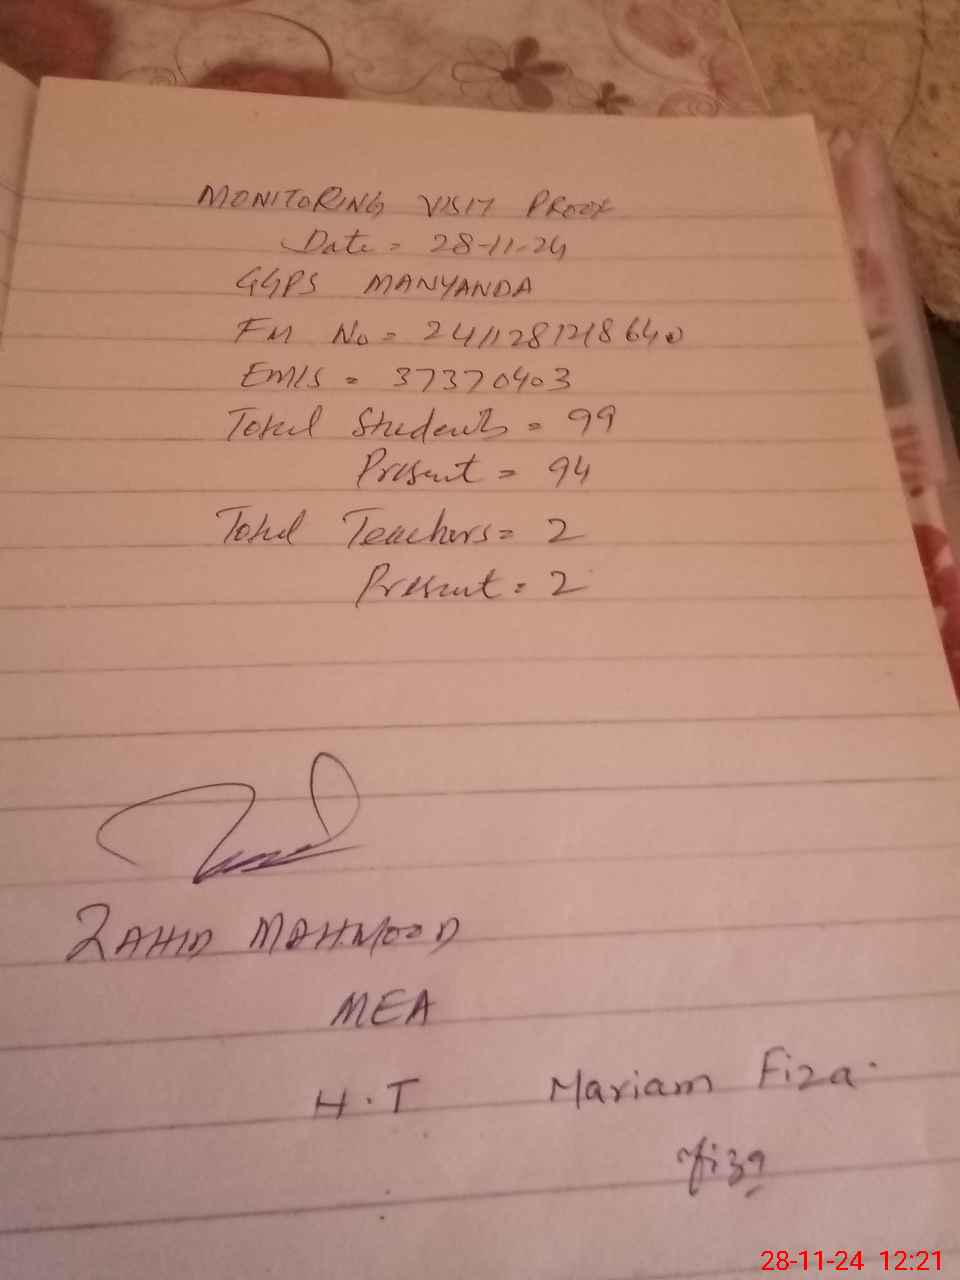 MONITORING VISIT PROOF
Date = 28-11-24
GGPS MANYANDA
FM No = 2411281218640
EMIS = 37370403
Total Students = 99
Present = 94
Total Teachers = 2
Present = 2
ZAHID MAHMOOD
MEA
H.T Mariam Fiza.
Fiza
28-11-24 12:21